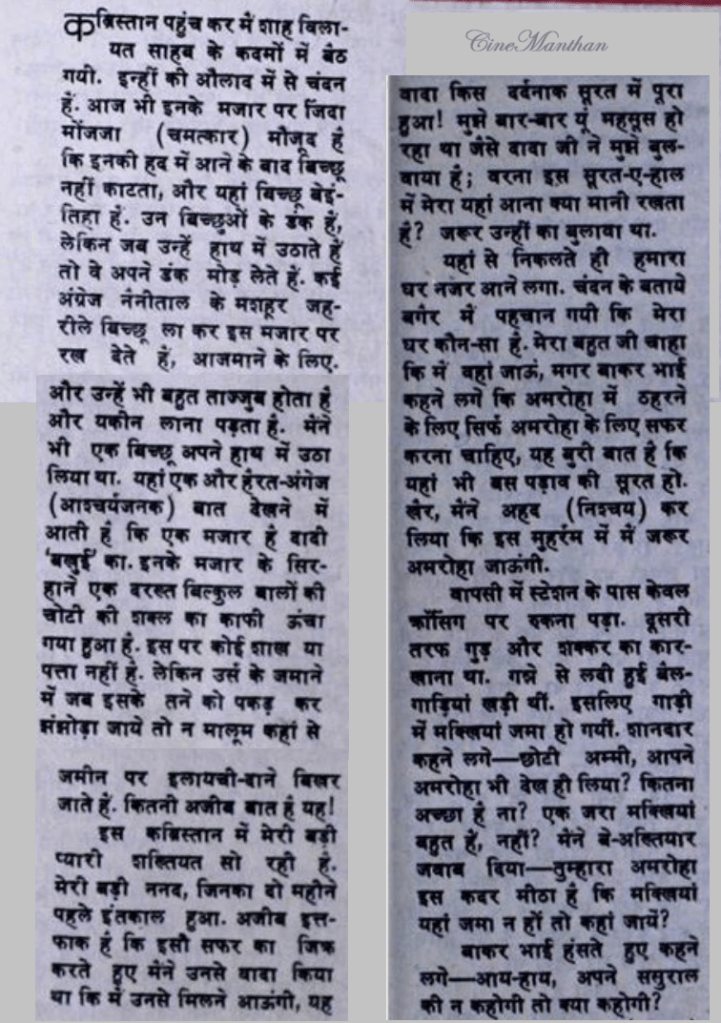 कब्रिस्तान पहुंच कर मैं शाह विला-
यत साहब के कदमों में बैठ
गयी. इन्हीं की औलाद में से चंदन
हैं. आज भी इनके मजार पर जिंदा
मोंजजा (चमत्कार) मौजूद है
कि इनकी हद में आने के बाद बिच्छू
नहीं काटता, और यहां बिच्छू बेइं-
तिहा हैं. उन बिच्छुओं के डंक हैं,
लेकिन जब उन्हें हाथ में उठाते हैं
तो वे अपने डंक मोड़ लेते हैं. कई
अंग्रेज नैनीताल के मशहूर जह-
रीले बिच्छू ला कर इस मजार पर
रख देते हैं, आजमाने के लिए.
और उन्हें भी बहुत ताज्जुब होता है
और यकीन लाना पड़ता है. मैंने
भी एक बिच्छू अपने हाथ में उठा
लिया था. यहां एक और हैरत-अंगेज
(आश्चर्यजनक) बात देखने में
आती है कि एक मजार है दादी
'बखुई' का. इनके मजार के सिर-
हाने एक दरख्त बिल्कुल बालों की
चोटी की शक्ल का काफी ऊंचा
गया हुआ है. इस पर कोई शाख या
पत्ता नहीं है. लेकिन उर्स के जमाने
में जब इसके तने को पकड़ कर
झंझोड़ा जाये तो न मालूम कहां से
जमीन पर इलायची-दाने बिखर
जाते हैं. कितनी अजीब बात है यह!
इस कब्रिस्तान में मेरी बड़ी
प्यारी शख्सियत सो रही है.
मेरी बड़ी ननद, जिनका दो महीने
पहले इंतकाल हुआ. अजीब इत्त-
फाक है कि इसी सफर का जिक्र
करते हुए मैंने उनसे वादा किया
था कि मैं उनसे मिलने आऊंगी, यह
CineManthan
वादा किस दर्दनाक सूरत में पूरा
हुआ! मुझे बार-बार यूं महसूस हो
रहा था जैसे दादा जी ने मुझे बुल-
वाया है; वरना इस सूरत-ए-हाल
में मेरा यहां आना क्या मानी रखता
है? जरूर उन्हीं का बुलावा था.
यहां से निकलते ही हमारा
घर नजर आने लगा. चंदन के बताये
बगैर मैं पहचान गयी कि मेरा
घर कौन-सा है. मेरा बहुत जी चाहा
कि मैं वहां जाऊं, मगर बाकर भाई
कहने लगे कि अमरोहा में ठहरने
के लिए सिर्फ अमरोहा के लिए सफर
करना चाहिए, यह बुरी बात है कि
यहां भी बस पड़ाव की सूरत हो.
खैर, मैंने अहद (निश्चय) कर
लिया कि इस मुहर्रम में मैं जरूर
अमरोहा जाऊंगी.
वापसी में स्टेशन के पास केवल
क्रॉसिंग पर रुकना पड़ा. दूसरी
तरफ गुड़ और शक्कर का कार-
खाना था. गन्ने से लदी हुई बैल-
गाड़ियां खड़ी थीं. इसलिए गाड़ी
में मक्खियां जमा हो गयीं. शानदार
कहने लगे—छोटी अम्मी, आपने
अमरोहा भी देख ही लिया? कितना
अच्छा है ना? एक जरा मक्खियां
बहुत हैं, नहीं? मैंने बे-अख्तियार
जवाब दिया—तुम्हारा अमरोहा
इस कदर मीठा है कि मक्खियां
यहां जमा न हों तो कहां जायें?
बाकर भाई हंसते हुए कहने
लगे—आय-हाय, अपने ससुराल
की न कहोगी तो क्या कहोगी?